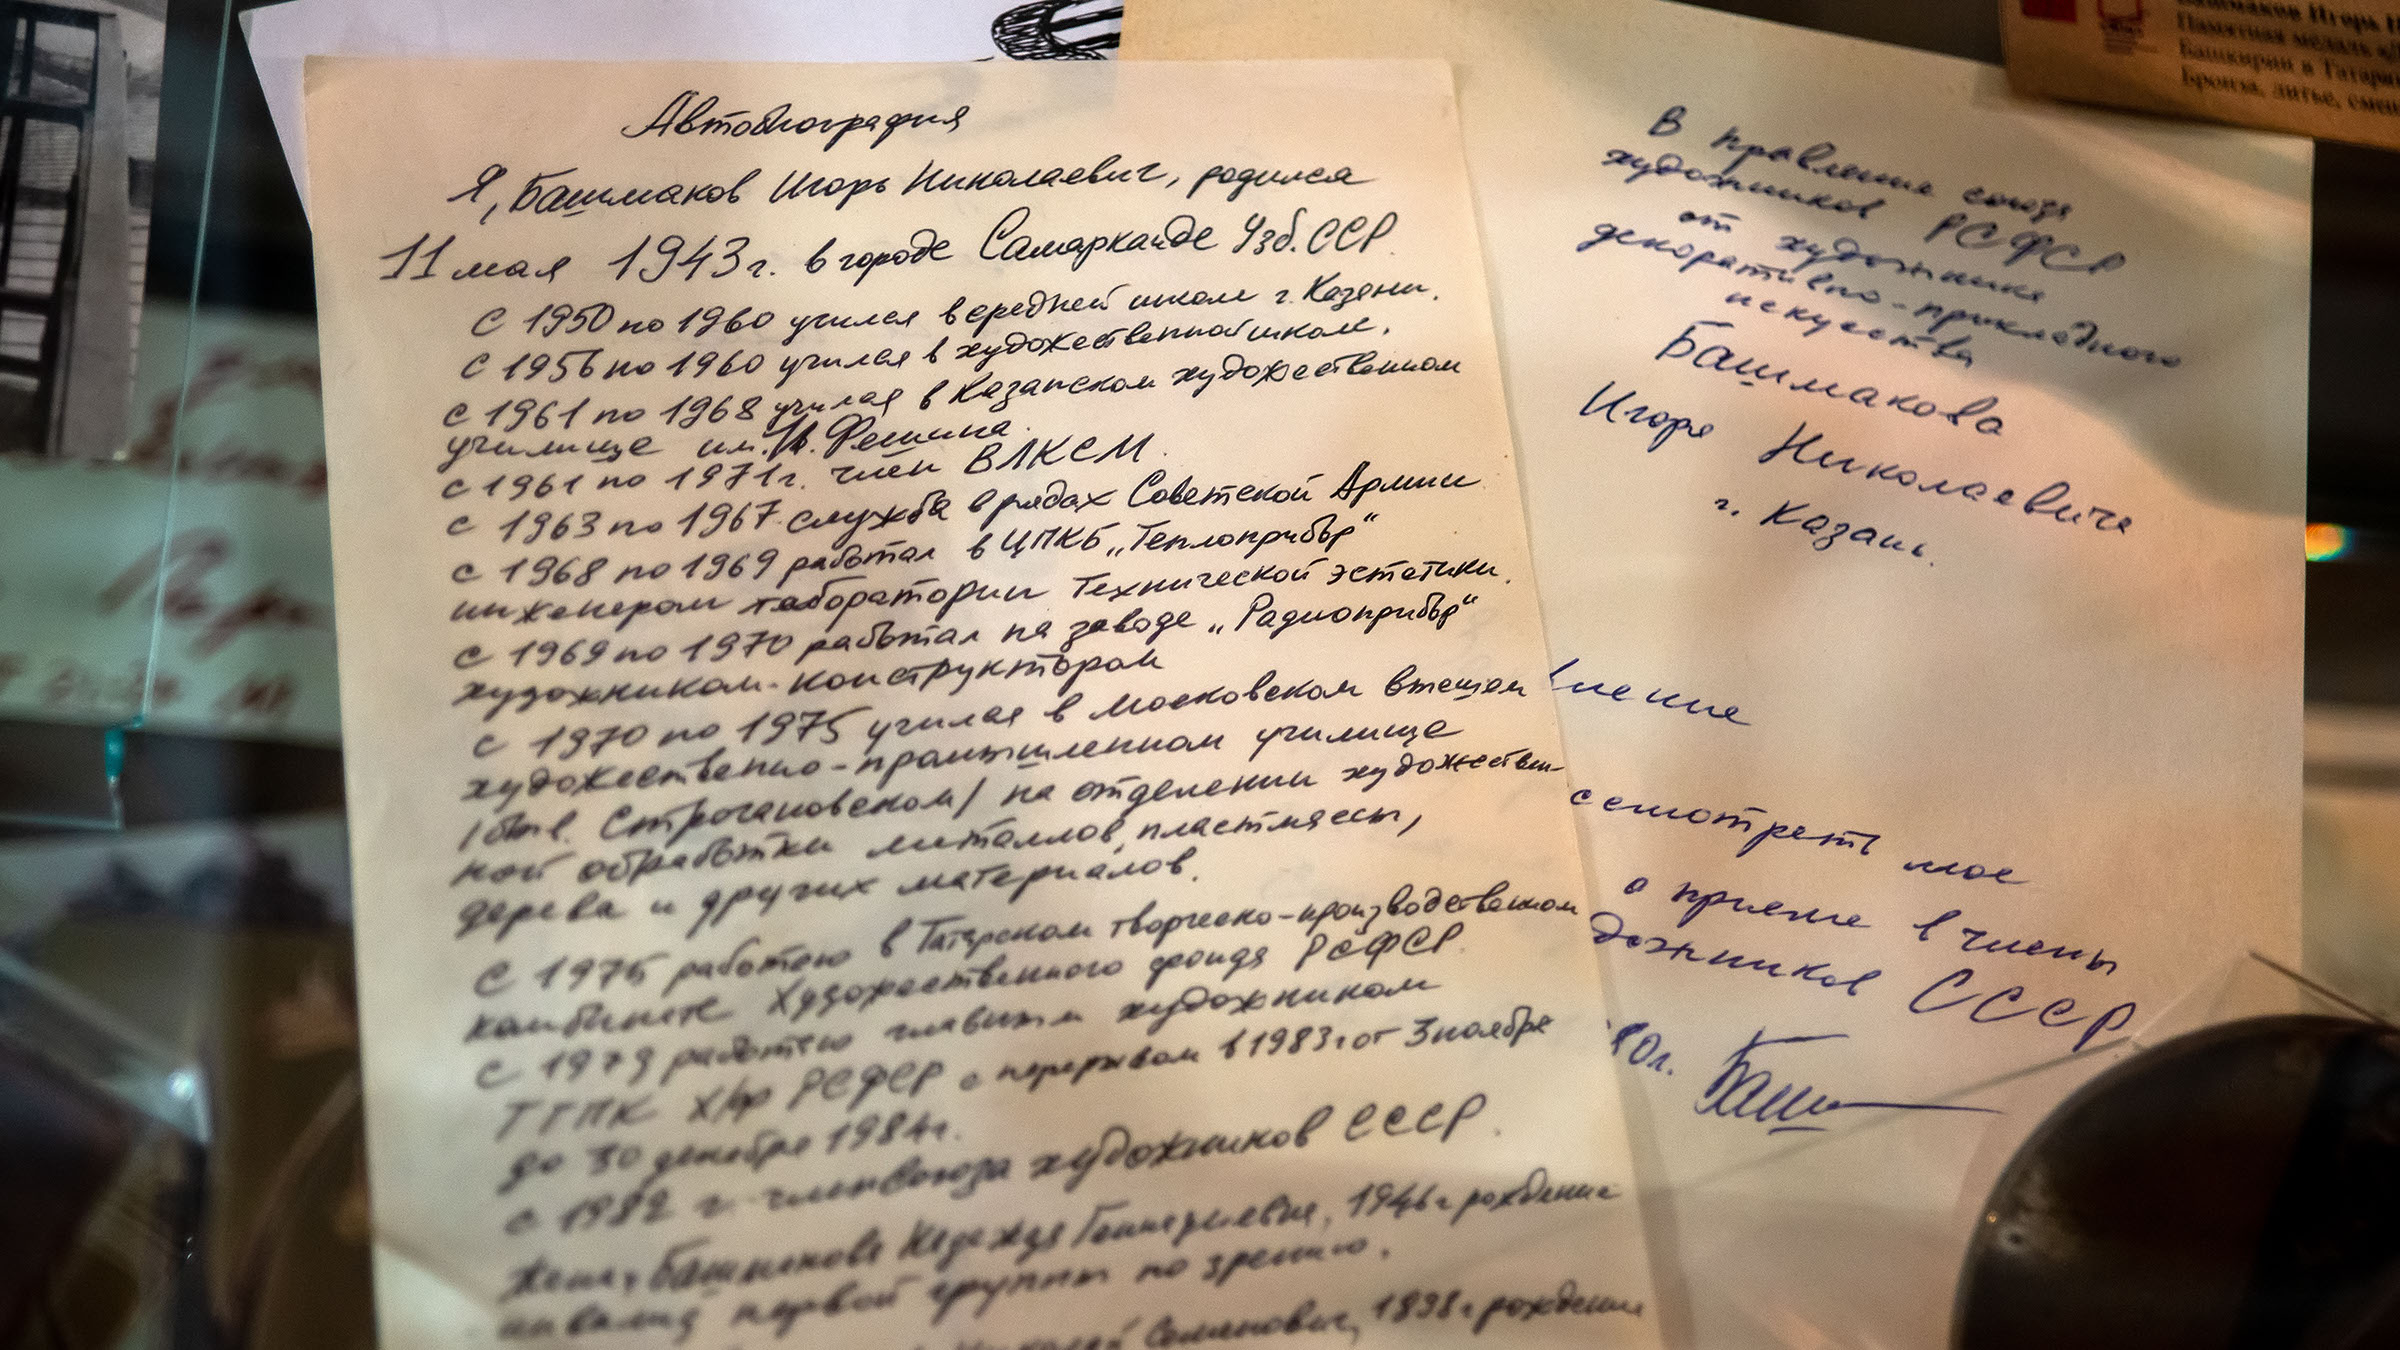 Автобиография
Я, Башмаков Игорь Николаевич, родился
11 мая 1943 г. в городе Самарканде Узб. ССР.
С 1950 по 1960 учился в средней школе г. Казани.
С 1956 по 1960 учился в художественной школе.
С 1961 по 1968 учился в Казанском художественном
училище им. Н. Фешина.
С 1961 по 1971 г. член ВЛКСМ.
С 1963 по 1967. служба в рядах Советской Армии
С 1968 по 1969 работал в ЦПКБ „Теплоприбор“
инженером лаборатории Технической эстетики.
С 1969 по 1970 работал на заводе „Радиоприбор“
художником-конструктором
С 1970 по 1975 учился в Московском высшем
художественно-промышленном училище
/бывш. Строгановском/ на отделении художествен-
ной обработки металлов, пластмассы,
дерева и других материалов.
С 1975 работаю в Татарском творческо-производственном
комбинате Художественного фонда РСФСР.
С 1979 работаю главным художником
ТТПК Х/ф РСФСР с перерывом в 1983 г от 3 ноября
до 30 декабря 1984 г.
С 1982 г. член союза художников СССР.
Жена, Башмакова Надежда Геннадиевна, 1946 г рождения
инвалид первой группы по зрению.
Николай Семенович, 1898 г рождения
В правление союза
художников РСФСР
от художника
декоративно-прикладного
искусства
Башмакова
Игоря Николаевича
г. Казань.
ление
ссмотреть мое
о приеме в члены
дожников СССР
80 г. Баш
Башмаков Игорь Н
Памятная медаль
Башкирии в Татари
Бронза, литье,